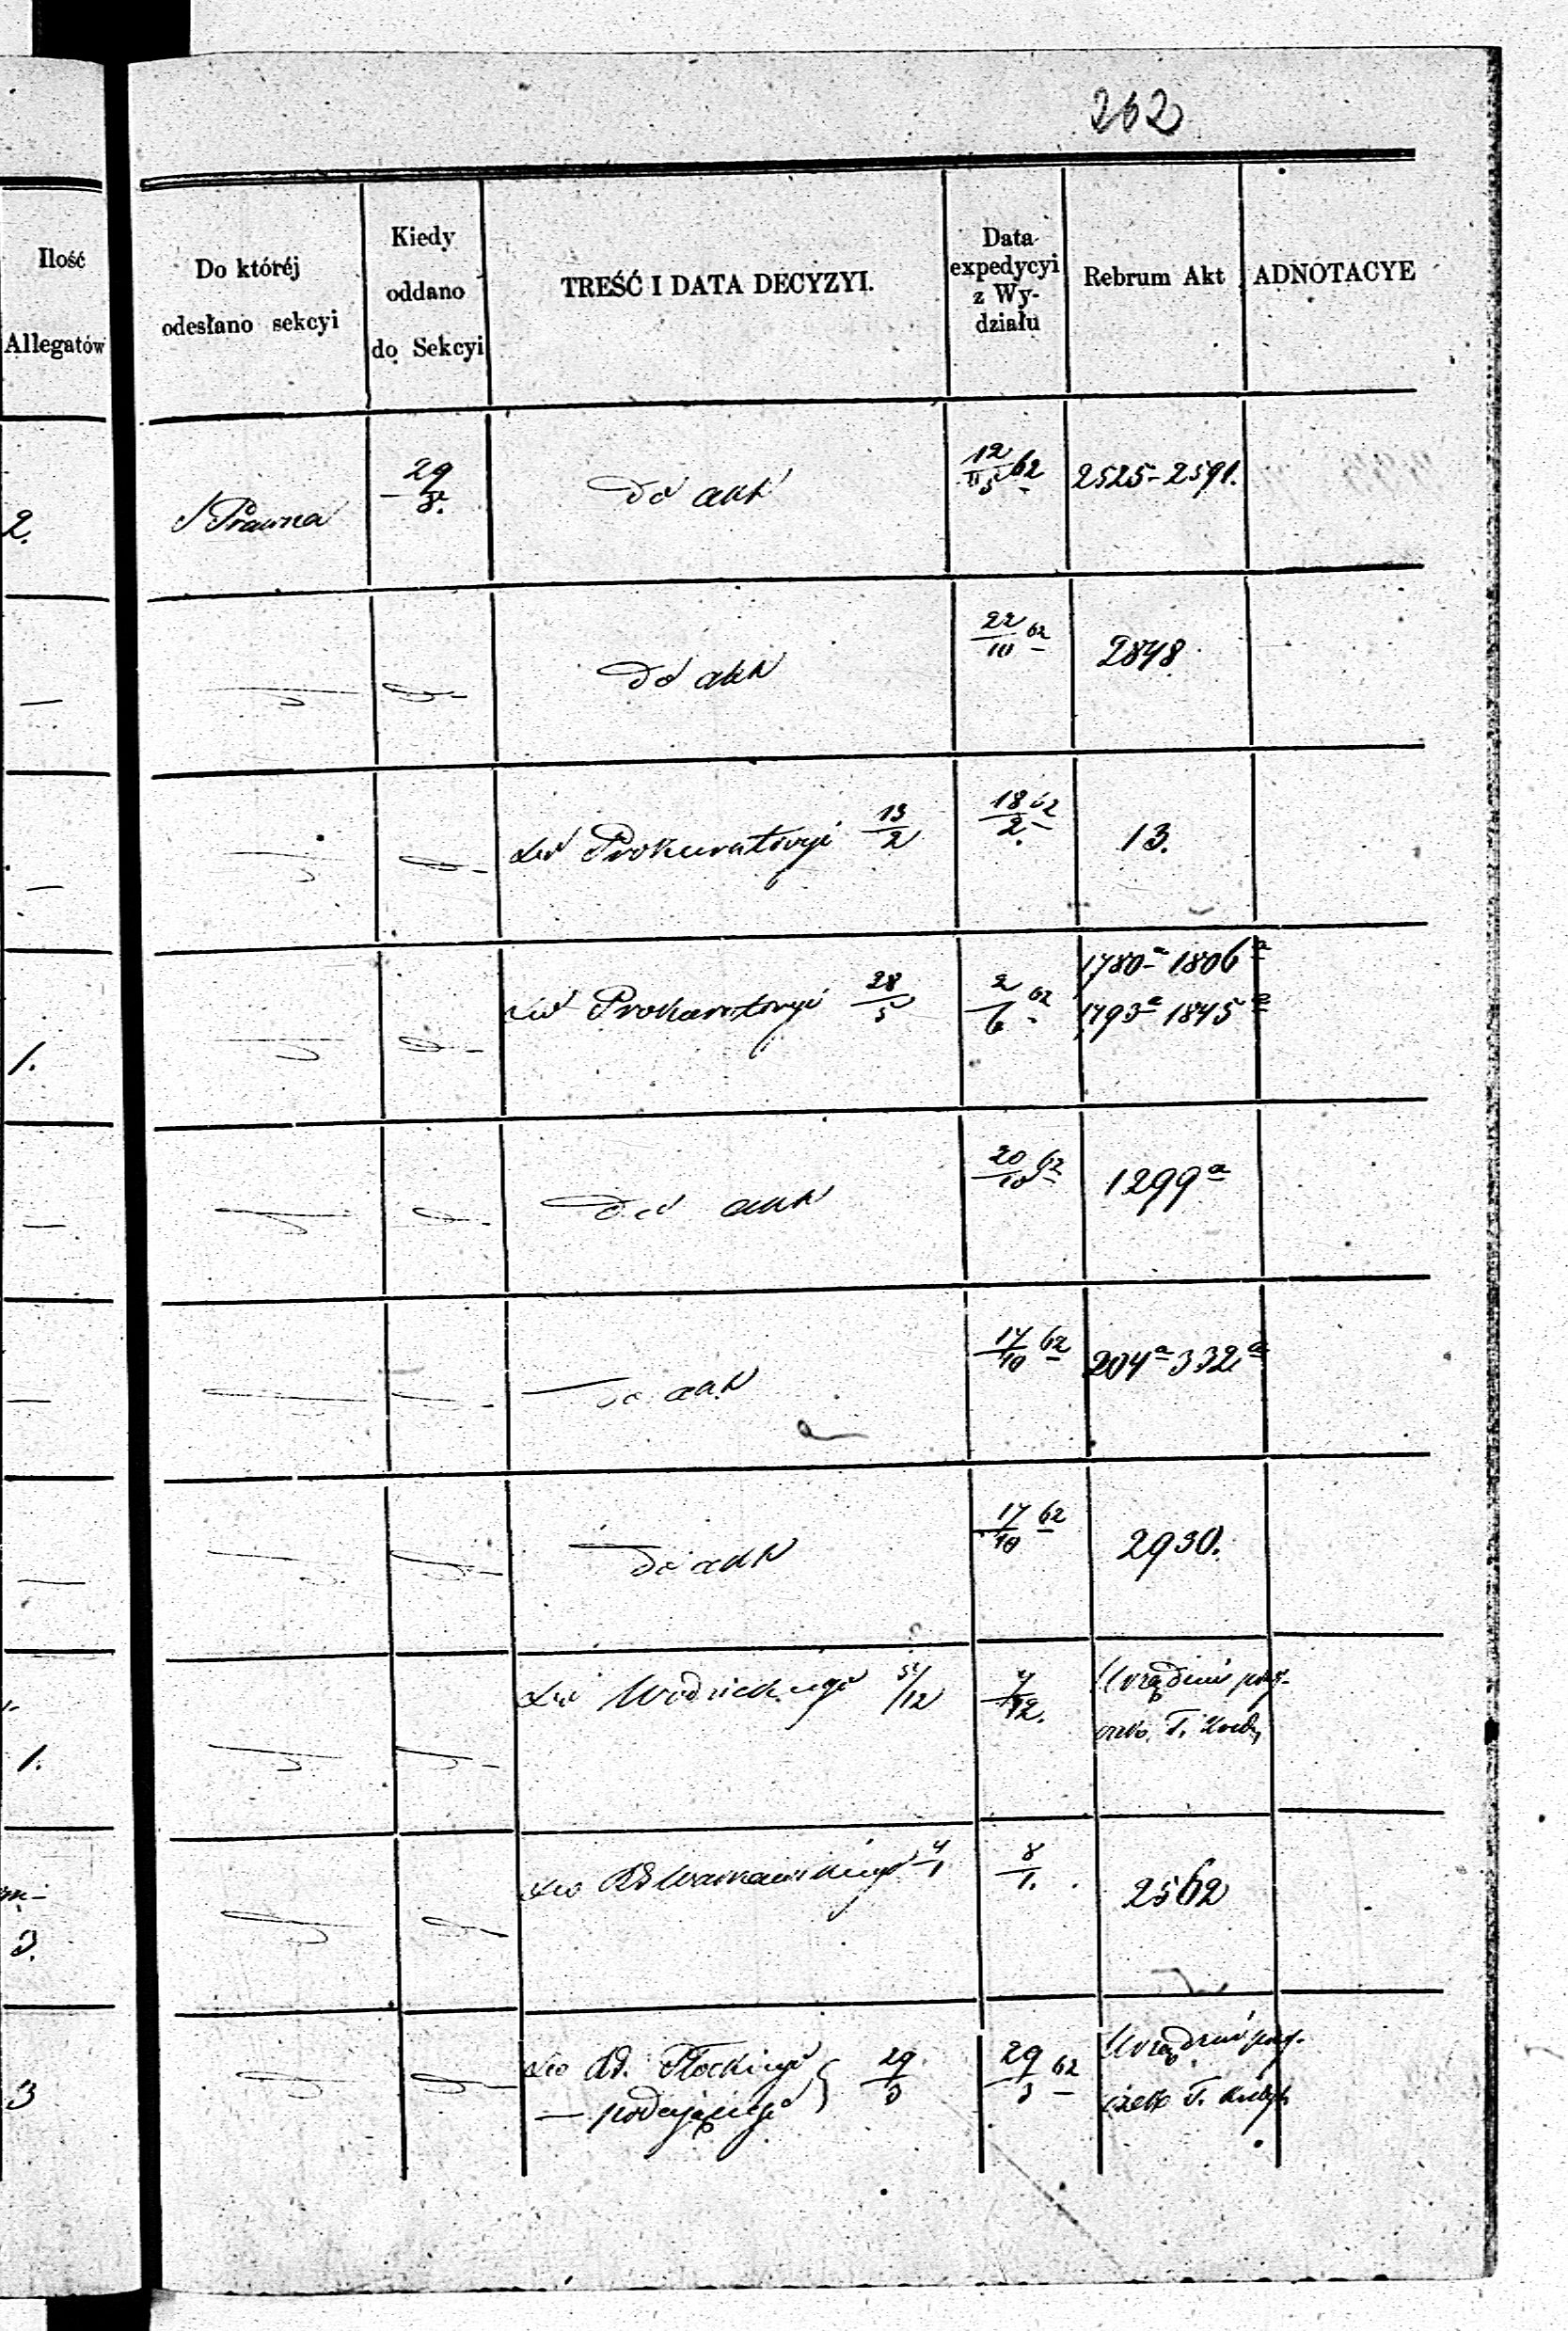 262
Ilość
Allegatów
Do któréj
odesłano sekcyi
Kiedy
oddano
do Sekcyi
TREŚĆ I DATA DECYZYI.
Data
expedycyi
z Wy-
działu
Rebrum Akt
ADNOTACYE
2. Prawna 29/8. do akt 12/5 62 2525-2591.
— do akt 22/10 62 2848
— Prokuratoryi 13/2 18/2 62 13.
1. Prokuratoryi 28/5 2/6 62 1780a 1806a
1793a 1845a
— do akt 20/10 62 1299a
— do akt 17/10 62 204a 332a
— do akt 17/10 62 2930.
1. /12 /12.
3. 4/1 8/1. 2562
3 Płockiego 29/3 29/3 62
— podającego